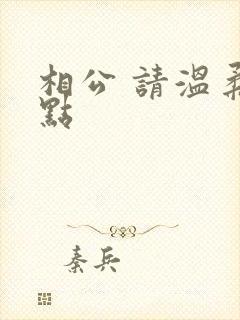 相公 請溫柔
點
秦兵